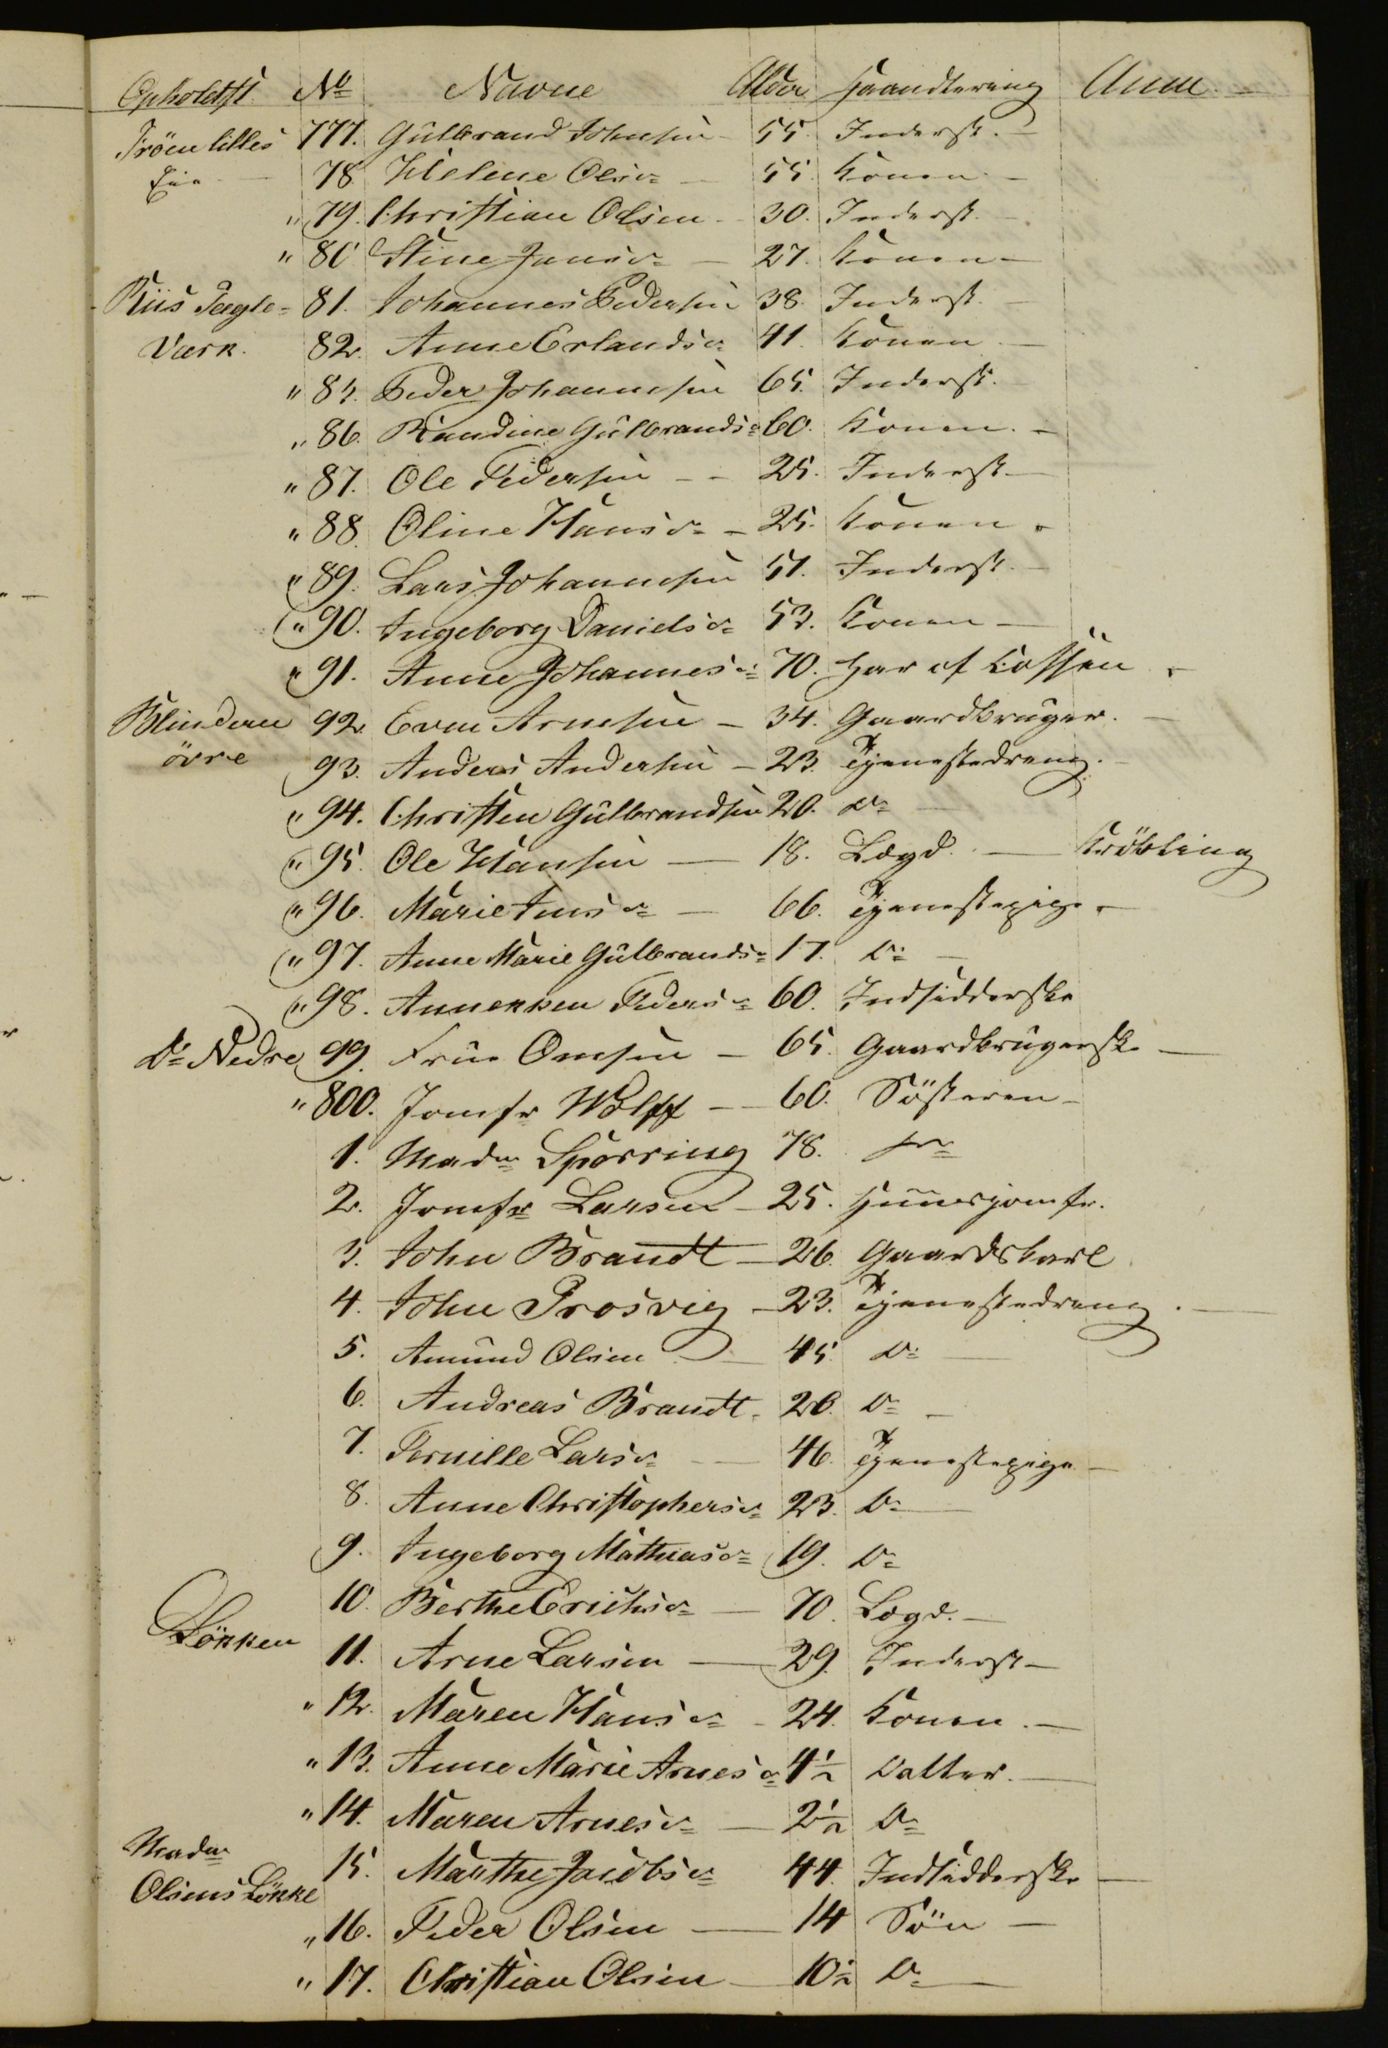 Opholdst. No Navne Alder Haandtering Anm.
Tröen lilles 777. Gulbrand Johnsen 55. Inderst.
Eie 78 Helene Olsd. 55. Konen
" 79. Christian Olsen 30. Inderst.
" 80 Stine Jansd. 27. Konen
Riis Tegle- 81. Johannes Pedersen 38. Inderst.
Værk. 82. Anne Erlandsd. 41. Konen
" 85. Peder Johannesen 65. Inderst.
" 86. Randine Gulbrandsd. 60. Konen.
" 87. Ole Pedersen 25. Inderst
" 88. Oline Hansd. 25. Konen
" 89. Lars Johannesen 51. Inderst.
" 90. Ingeborg Danielsd. 53. Konen
" 91. Anne Johannesd. 70. Har af Cassen
Blindern 92. Even Arnesen 34. Gaardbruger.
övre 93. Anders Andersen 23. Tjenestedreng.
" 94. Christen Gulbrandsen 20. Do
" 95. Ole Hansen 18. Lægd. Kröbling
" 96. Marie Jensd. 66. Tjenestepige
" 97. Anne Marie Gulbrandsd. 17. Do
" 98. Annekken Pedersd. 60. Indsidderske
Do Nedre 99. Frue Omsen 65. Gaardbrugerske
" 800. Jomfr Wolff 60. Sösteren
1. Madm Sporring 78.
2. Jomfr Larsen 25. Huusjomfr.
3. John Brandt 26. Gaardskarl
4. John Prosvig 23. Tjenestedreng.
5. Amund Olsen 45 Do
6. Andreas Brandt. 26. Do
7. Pernille Larsd. 46. Tjenestepige
8. Anne Christophersd. 23. Do
9. Ingeborg Mathiasd. 19. Do
10. Berthe Erichsd. 70. Lægd.
Lökken 11. Arne Larsen 29. Inderst
" 12. Maren Hansd. 24. Konen.
" 13. Anne Marie Arnesd. 4½ Datter.
" 14. Maren Arnesd. 2½ Do
Madm 15. Marthe Jacobsd. 44. Indsidderske
Olsens Lökke
" 16. Peder Olsen 14 Sön
" 17. Christian Olsen 10½ Do